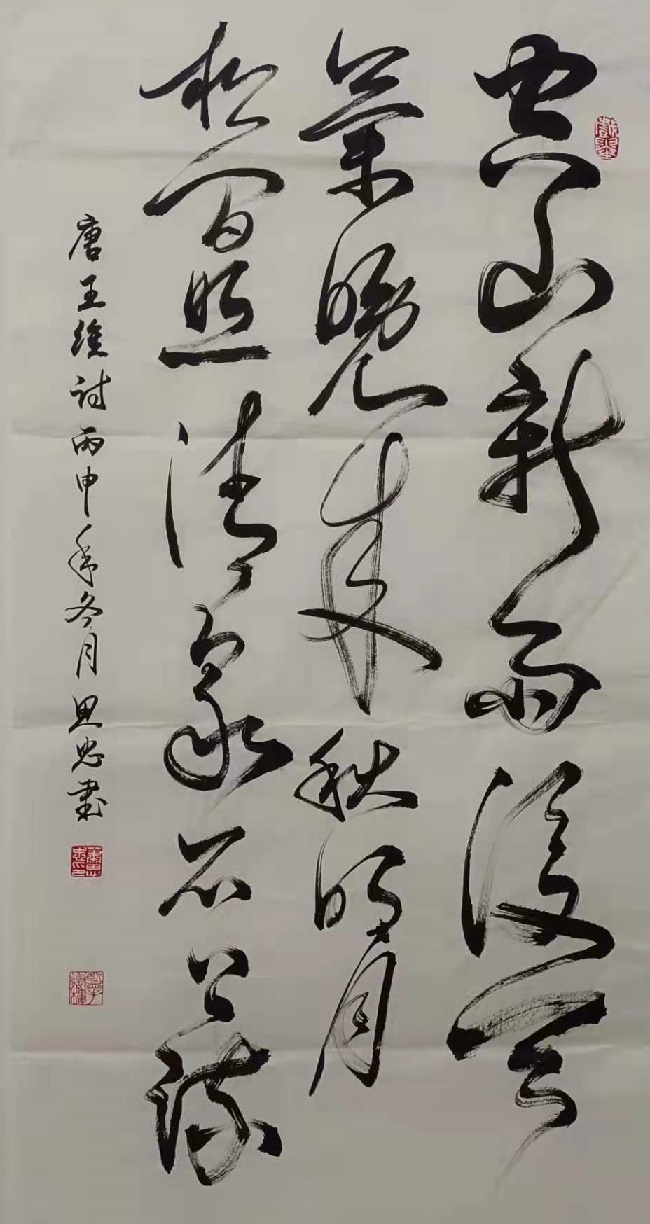 空山新雨後天
氣晚來秋明月
松間照清泉石上流
唐王維詩丙申年冬月思忠書